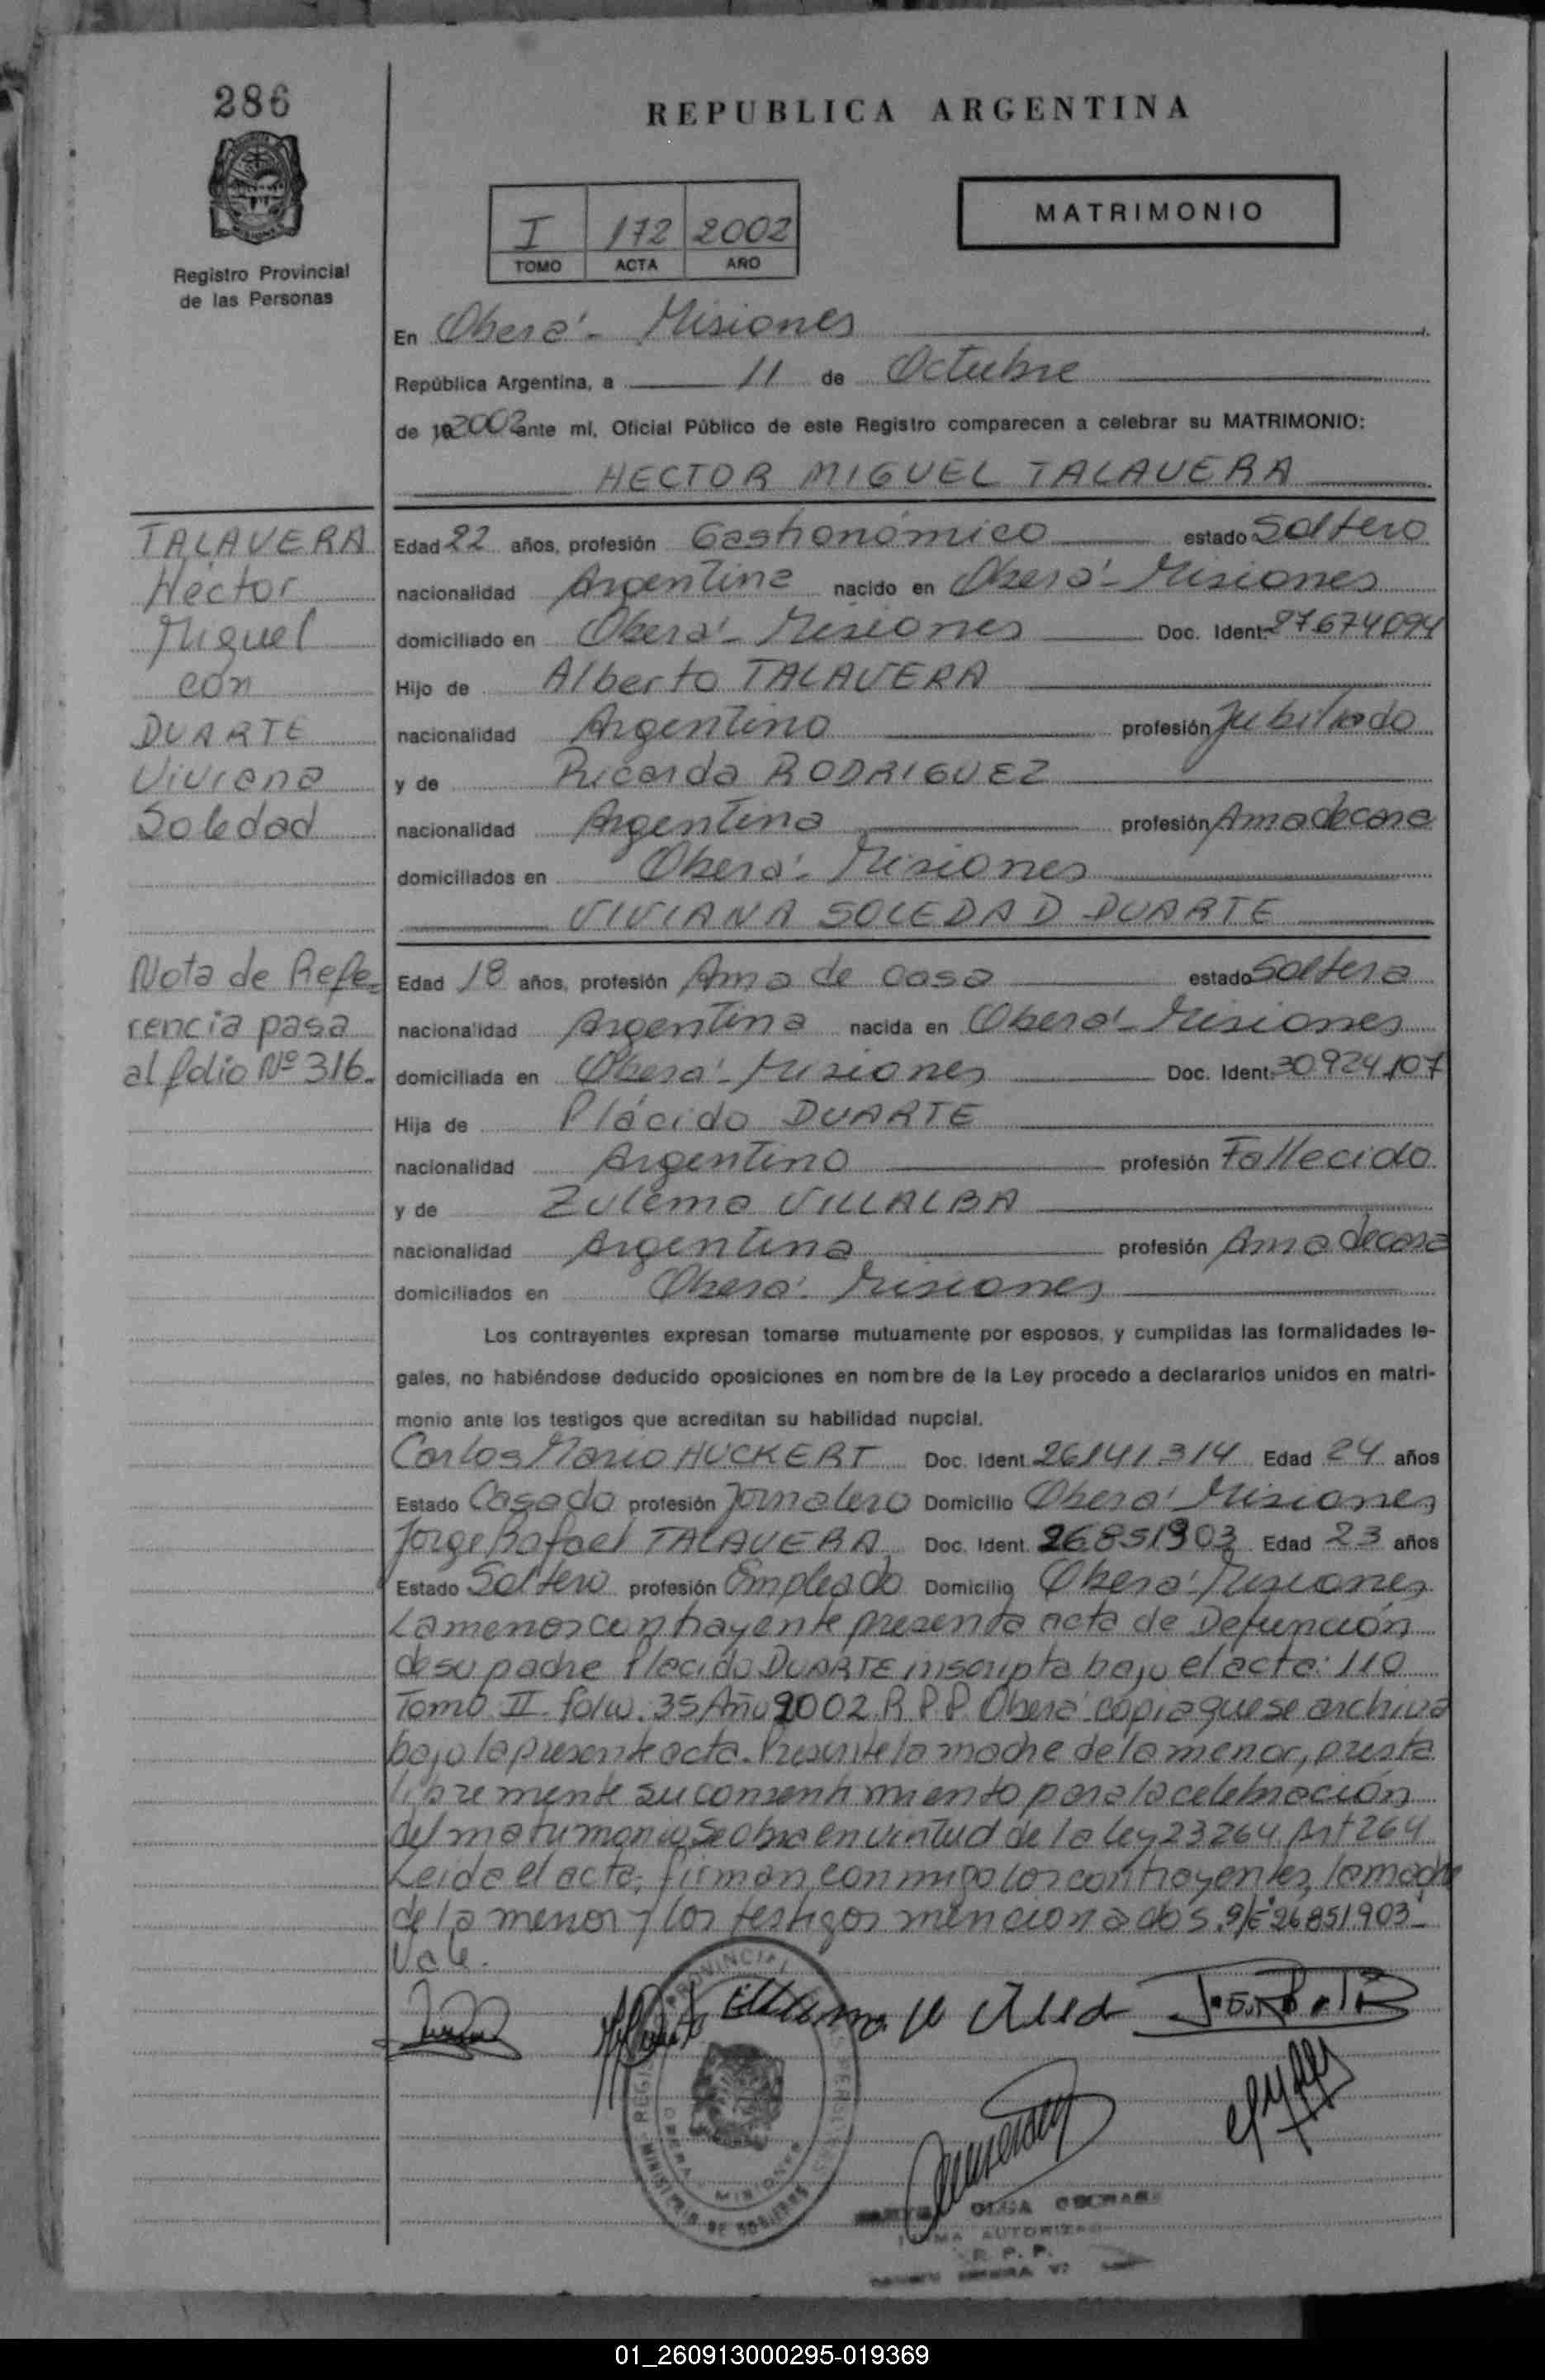 286
REPUBLICA ARGENTINA
MATRIMONIO
I 172 2002
TOMO ACTA AÑO
Registro Provincial
de las Personas
En Oberá - Misiones
República Argentina, a 11 de Octubre
de 19 2002 ante mí, Oficial Público de este Registro comparecen a celebrar su MATRIMONIO:
HECTOR MIGUEL TALAVERA
TALAVERA
Héctor
Miguel
con
DUARTE
Viviana
Soledad
Edad 22 años, profesión Gastronómico estado Soltero
nacionalidad Argentina nacido en Oberá - Misiones
domiciliado en Oberá - Misiones Doc. Ident. 27674094
Hijo de Alberto TALAVERA
nacionalidad Argentino profesión Jubilado
y de Ricarda RODRIGUEZ
nacionalidad Argentina profesión Ama de casa
domiciliados en Oberá - Misiones
VIVIANA SOLEDAD DUARTE
Nota de Refe-
rencia pasa
al folio Nº 316.
Edad 18 años, profesión Ama de casa estado Soltera
nacionalidad Argentina nacida en Oberá - Misiones
domiciliada en Oberá - Misiones Doc. Ident. 30924107
Hija de Plácido DUARTE
nacionalidad Argentino profesión Fallecido
y de Zulema VILLALBA
nacionalidad Argentina profesión Ama de casa
domiciliados en Oberá - Misiones
Los contrayentes expresan tomarse mutuamente por esposos, y cumplidas las formalidades le-
gales, no habiéndose deducido oposiciones en nombre de la Ley procedo a declararlos unidos en matri-
monio ante los testigos que acreditan su habilidad nupcial.
Carlos Mario HUCKERT Doc. Ident. 26141314 Edad 24 años
Estado Casado profesión Jornalero Domicilio Oberá - Misiones
Jorge Rafael TALAVERA Doc. Ident. 26851903 Edad 23 años
Estado Soltero profesión Empleado Domicilio Oberá - Misiones
La menor contrayente presenta acta de Defunción
de su padre Plácido DUARTE inscripta bajo el acta: 110
Tomo II folio 35 Año 2002 R.P.P. Oberá copia que se archiva
bajo la presente acta. Presente la madre de la menor, presta
libremente su consentimiento para la celebración
del matrimonio, se obra en virtud de la ley 23264 Art 264
Leida el acta, firman conmigo los contrayentes, la madre
de la menor y los testigos mencionados. S/E "26851903"
Vale.
PROVINCIAL
OBERA MISIONES
MINISTERIO DE GOBIERNO
OLGA
AUTORIZAD
R. P. P.
01_260913000295-019369